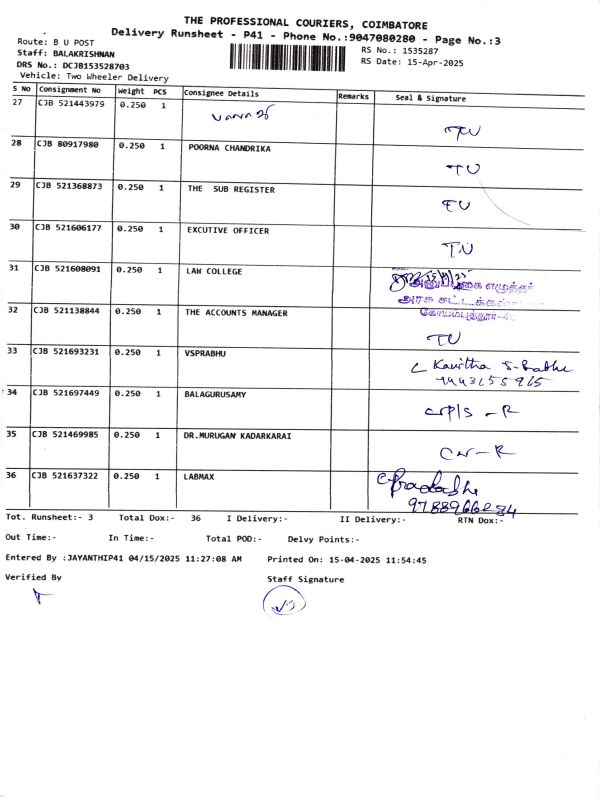 THE PROFESSIONAL COURIERS, COIMBATORE
Delivery Runsheet - P41 - Phone No.:9047080280 - Page No.:3
Route: B U POST
RS No.: 1535287
Staff: BALAKRISHNAN
RS Date: 15-Apr-2025
DRS No.: DCJB153528703
Vehicle: Two Wheeler Delivery
S No Consignment No Weight PCS Consignee Details Remarks Seal & Signature
27 CJB 521443979 0.250 1
28 CJB 80917980 0.250 1 POORNA CHANDRIKA
29 CJB 521368873 0.250 1 THE SUB REGISTER
30 CJB 521606177 0.250 1 EXCUTIVE OFFICER
31 CJB 521608091 0.250 1 LAW COLLEGE
32 CJB 521138844 0.250 1 THE ACCOUNTS MANAGER
33 CJB 521693231 0.250 1 VSPRABHU Kavitha
34 CJB 521697449 0.250 1 BALAGURUSAMY
35 CJB 521469985 0.250 1 DR.MURUGAN KADARKARAI
36 CJB 521637322 0.250 1 LABMAX
Tot. Runsheet:- 3 Total Dox:- 36 I Delivery:- II Delivery:- RTN Dox:-
Out Time:- In Time:- Total POD:- Delvy Points:-
Entered By :JAYANTHIP41 04/15/2025 11:27:08 AM Printed On: 15-04-2025 11:54:45
Verified By Staff Signature